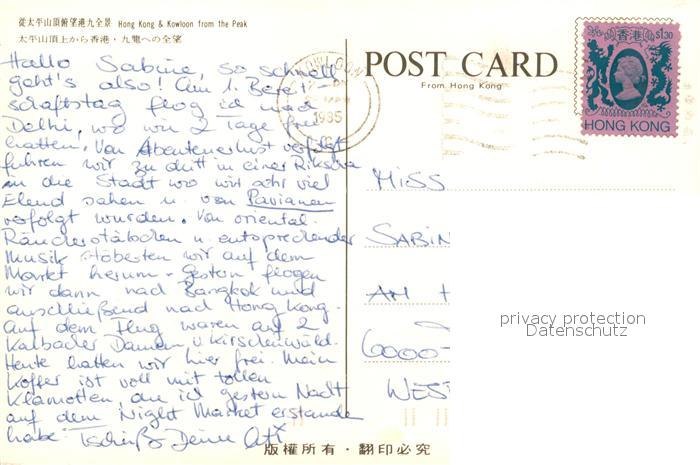 從太平山頂俯望港九全景 Hong Kong & Kowloon from the Peak
太平山頂上から香港・九龍への全望
Hallo Sabine, so schnell
geht's also! Am 1. Bereit
schaftstag flog ich nach
Delhi, wo wir 2 Tage frei
hatten. Von Abenteuerlust verfolgt
fuhren wir zu dritt in einer Rikscha
in die Stadt wo wir sehr viel
Elend sahen u. von Pavianen
verfolgt wurden. Von oriental.
Räucherstäbchen u. entsprechender
Musik stöberten wir auf dem
Markt herum. Gestern flogen
wir dann nach Bangkok und
anschließend nach Hong Kong.
Auf dem Flug waren auf 2
Damen u. Kirschenwald.
Heute hatten wir hier frei. Mein
Koffer ist voll mit tollen
Klamotten, die ich gestern Nacht
auf dem Night Market erstanden
habe. Tschüß Deine
POST CARD
From Hong Kong
KOWLOON
1985
香港 $1.30
HONG KONG
MISS
SABIN
AM
6000
WEST
privacy protection
Datenschutz
版權所有・翻印必究